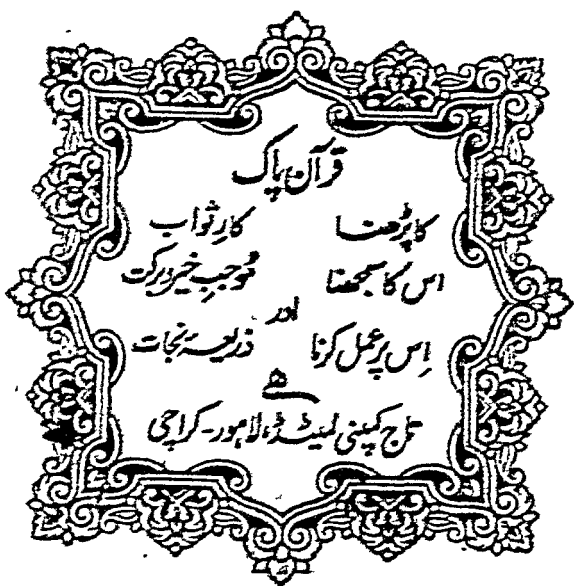 قرآن پاک
کا پڑھنا کارِ ثواب
اس کا سمجھنا موجبِ خیر و برکت
اور
اِس پر عمل کرنا ذریعۂ نجات
ھے
تاج کمپنی لمیٹڈ، لاہور۔ کراچی